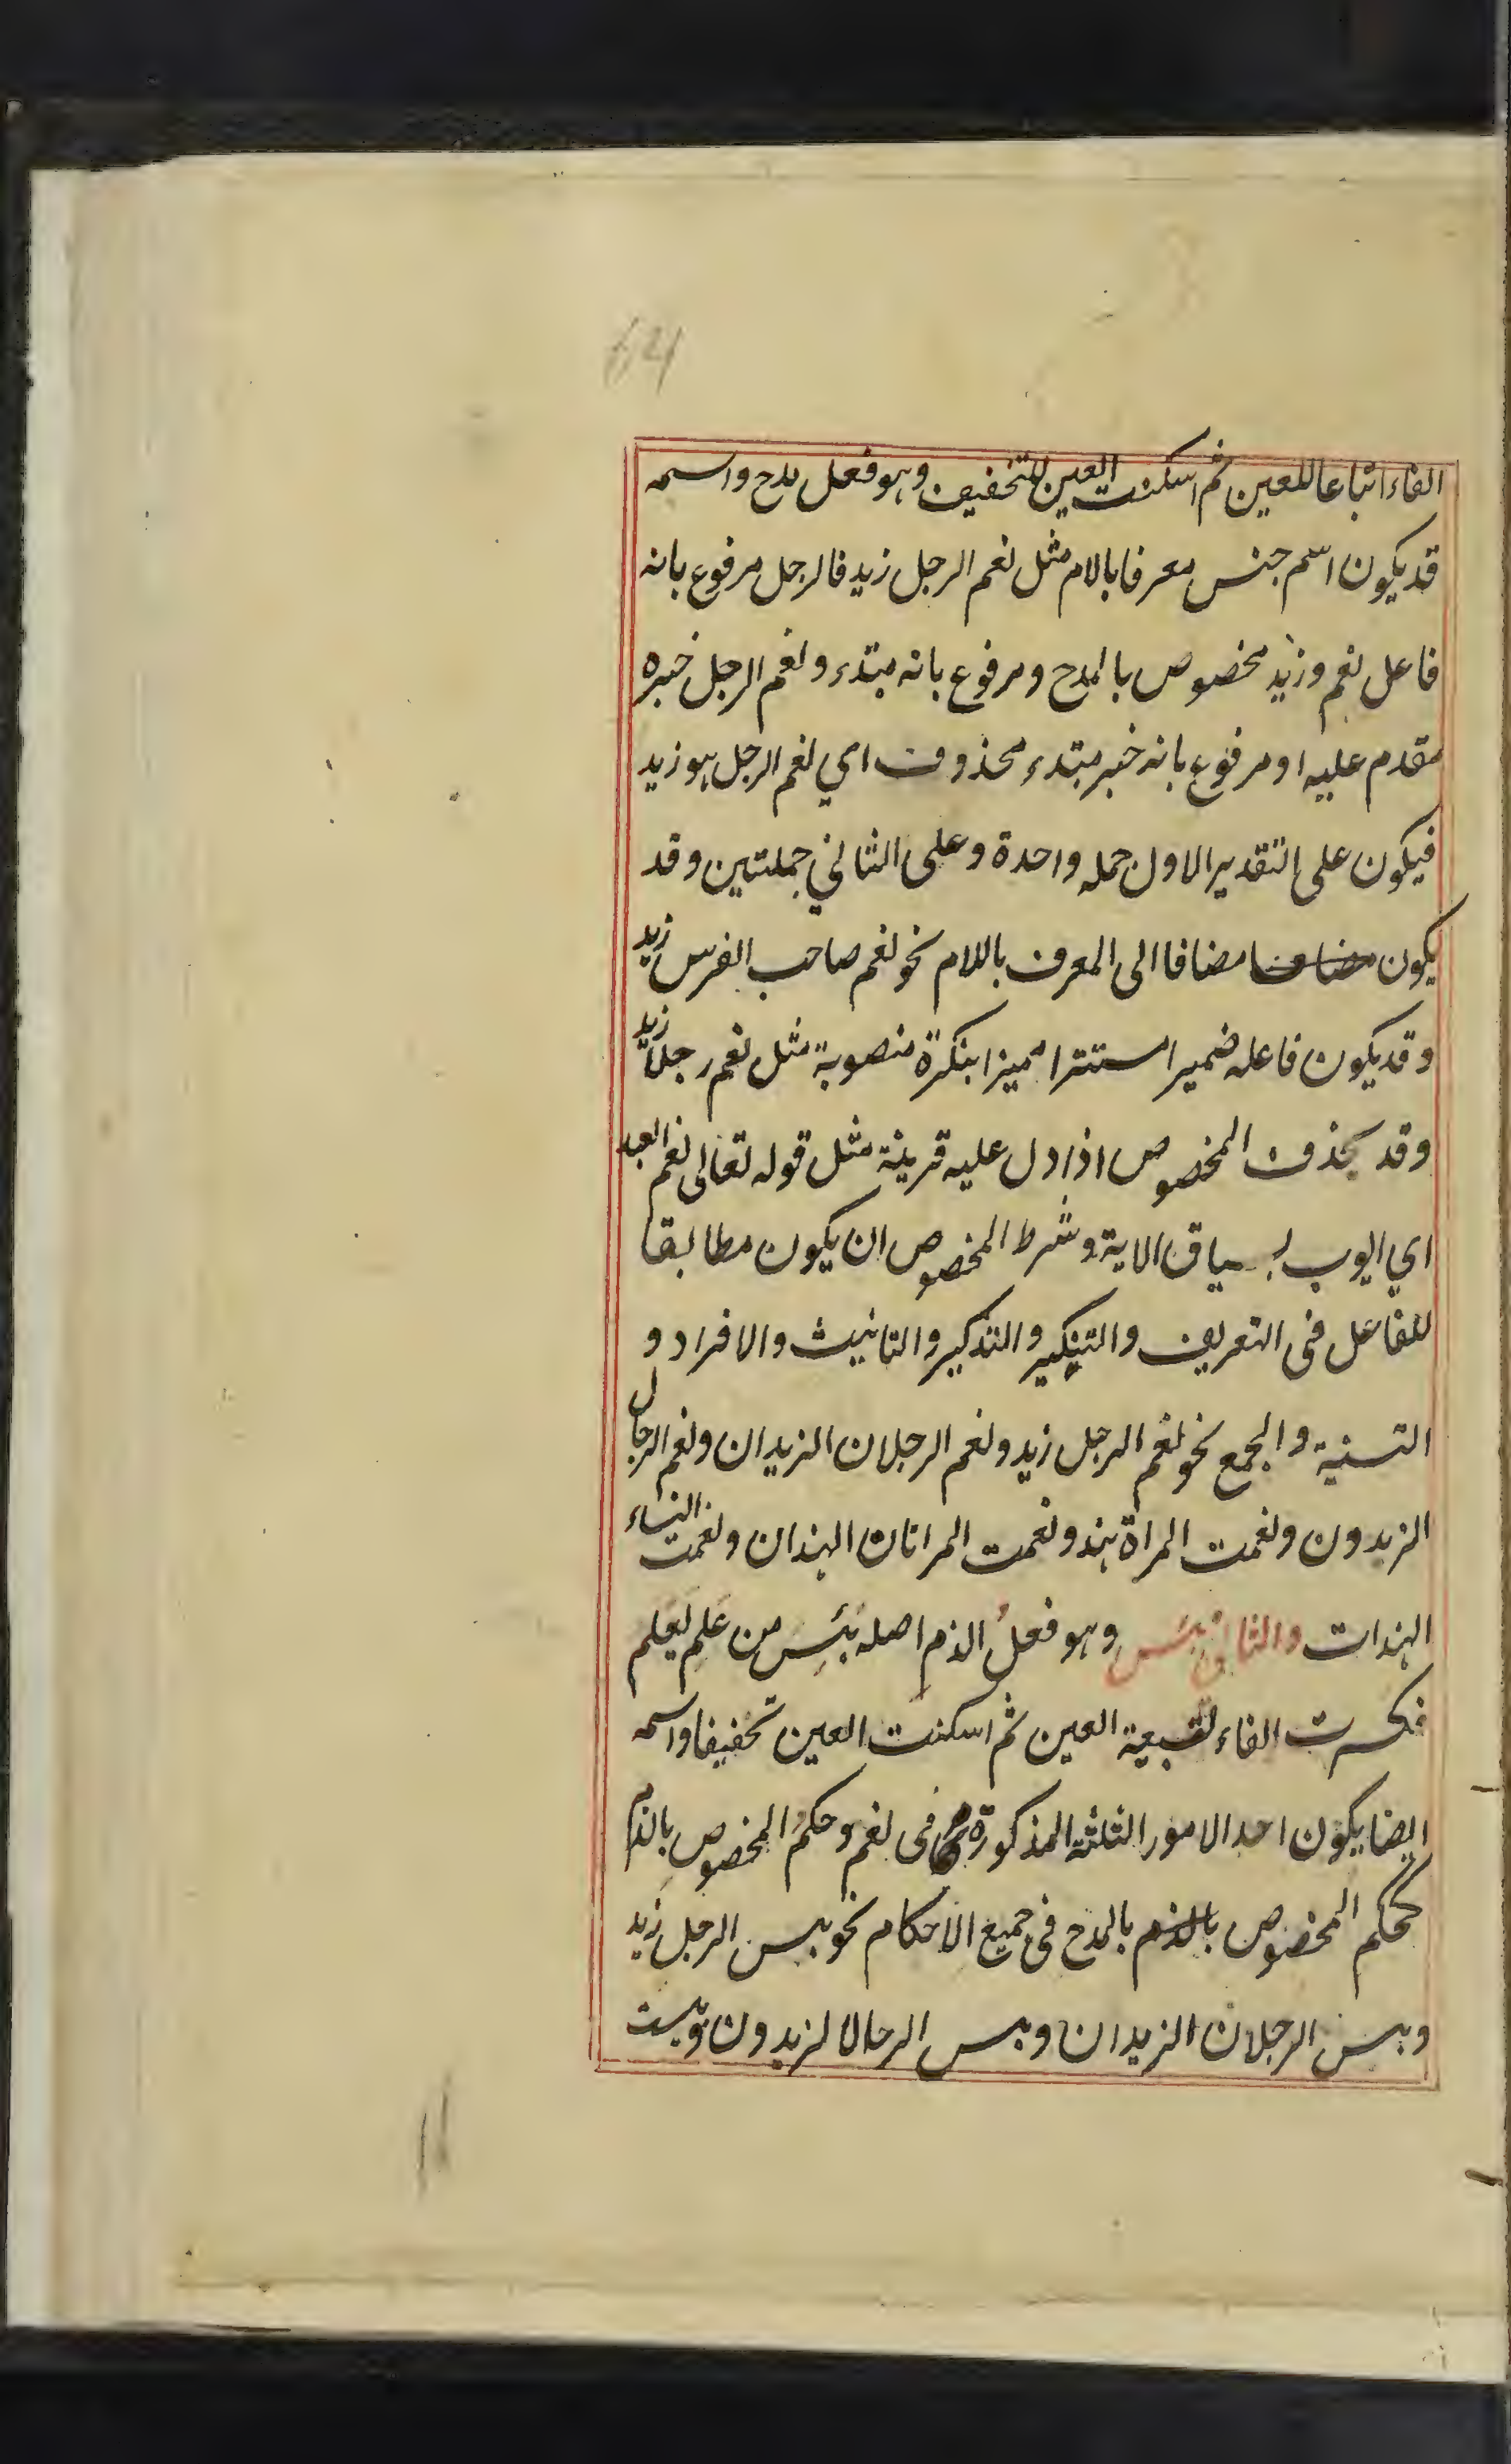 64
الفاء اتباعا للعين ثم اسكنت العين للتخفيف وهو فعل مدح واسمه
قد يكون اسم جنس معرفا بالام مثل نعم الرجل زيد فالرجل مرفوع بانه
فاعل نعم وزيد مخصوص بالمدح ومرفوع بانه مبتدء ونعم الرجل خبره
مقدم عليه او مرفوع بانه خبر مبتدء محذوف اي نعم الرجل هو زيد
فيكون على التقدير الاول جمله واحدة وعلى الثاني جملتين وقد
يكون مضافا مضافا الى المعرف باللام نحو نعم صاحب الفرس زيد
وقد يكون فاعله ضميرا مستترا مميزا بنكرة منصوبة مثل نعم رجلا زيد
وقد يحذف المخصوص اذا دل عليه قرينة مثل قوله تعالى نعم العبد
اي ايوب بسياق الاية وشرط المخصوص ان يكون مطابقا
للفاعل فى التعريف والتنكير والتذكير والتانيث والافراد و
التسنية والجمع نحو نعم الرجل زيد ونعم الرجلان الزيدان ونعم الرجال
الزيدون ونعمت المراة هند ونعمت المراتان الهندان ونعمت النساء
الهندات والثانى بئس وهو فعلُ الذم اصله بَئِس من عَلِم يَعلم
فكسرت الفاء لتبعية العين ثم اسكنت العين تخفيفا واسمه
ايضا يكون احد الامور الثلثة المذكورة فى نعم وحكم المخصوص بالذم
كحكم المخصوص بالذم بالمدح فى جميع الاحكام نحو بيس الرجل زيد
وبيس الرجلان الزيدان وبيس الرجال الزيدون وبيست
11